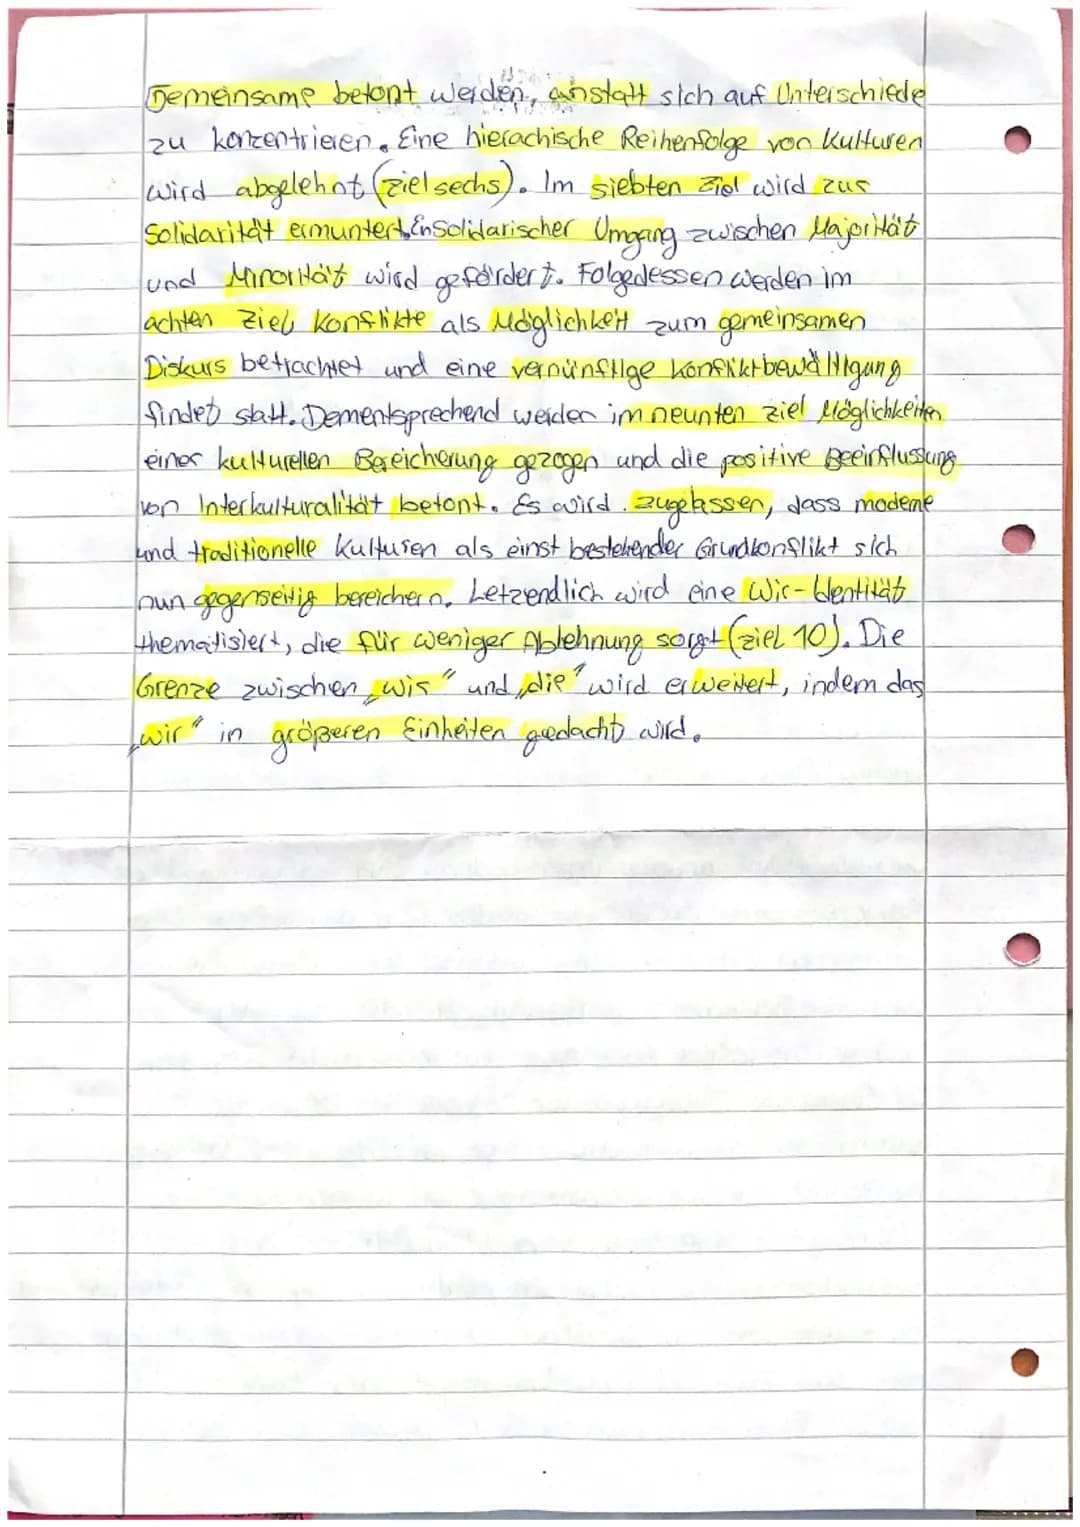 Gemeinsame betont werden, anstatt sich auf Unterschiede
zu konzentrieren. Eine hierachische Reihenfolge von Kulturen
wird abgelehnt (Ziel sechs). Im siebten Ziel wird zur
Solidarität ermuntert. Ein solidarischer Umgang zwischen Majorität
und Minorität wird gefördert. Folgedessen werden im
achten Ziel Konflikte als Möglichkeit zum gemeinsamen
Diskurs betrachtet und eine vernünftige Konfliktbewältigung
findet statt. Dementsprechend werden im neunten Ziel Möglichkeiten
einer kulturellen Bereicherung gezogen und die positive Beeinflussung
von Interkulturalität betont. Es wird zugelassen, dass moderne
und traditionelle Kulturen als einst bestehender Grundkonflikt sich
nun gegenseitig bereichern. Letzendlich wird eine Wir-Identität
thematisiert, die für weniger Ablehnung sorgt (Ziel 10). Die
Grenze zwischen „wir“ und „die“ wird erweitert, indem das
„wir“ in größeren Einheiten gedacht wird.